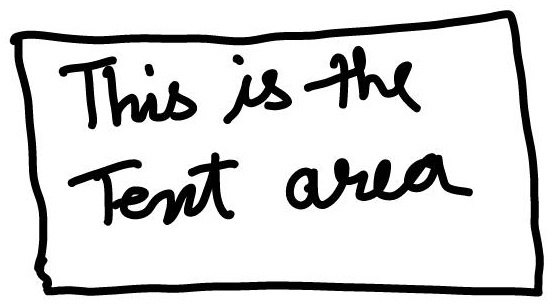 This is the
Tent area